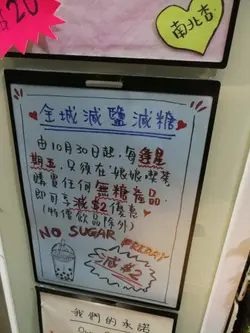 $20
南北杏
金城減鹽減糖
由10月30日起，每逢星
期五，只須在娘娘喫茶
購買任何無糖產品，
即可享減$2優惠
(特價飲品除外)
NO SUGAR FRIDAY
減$2
我們的承諾